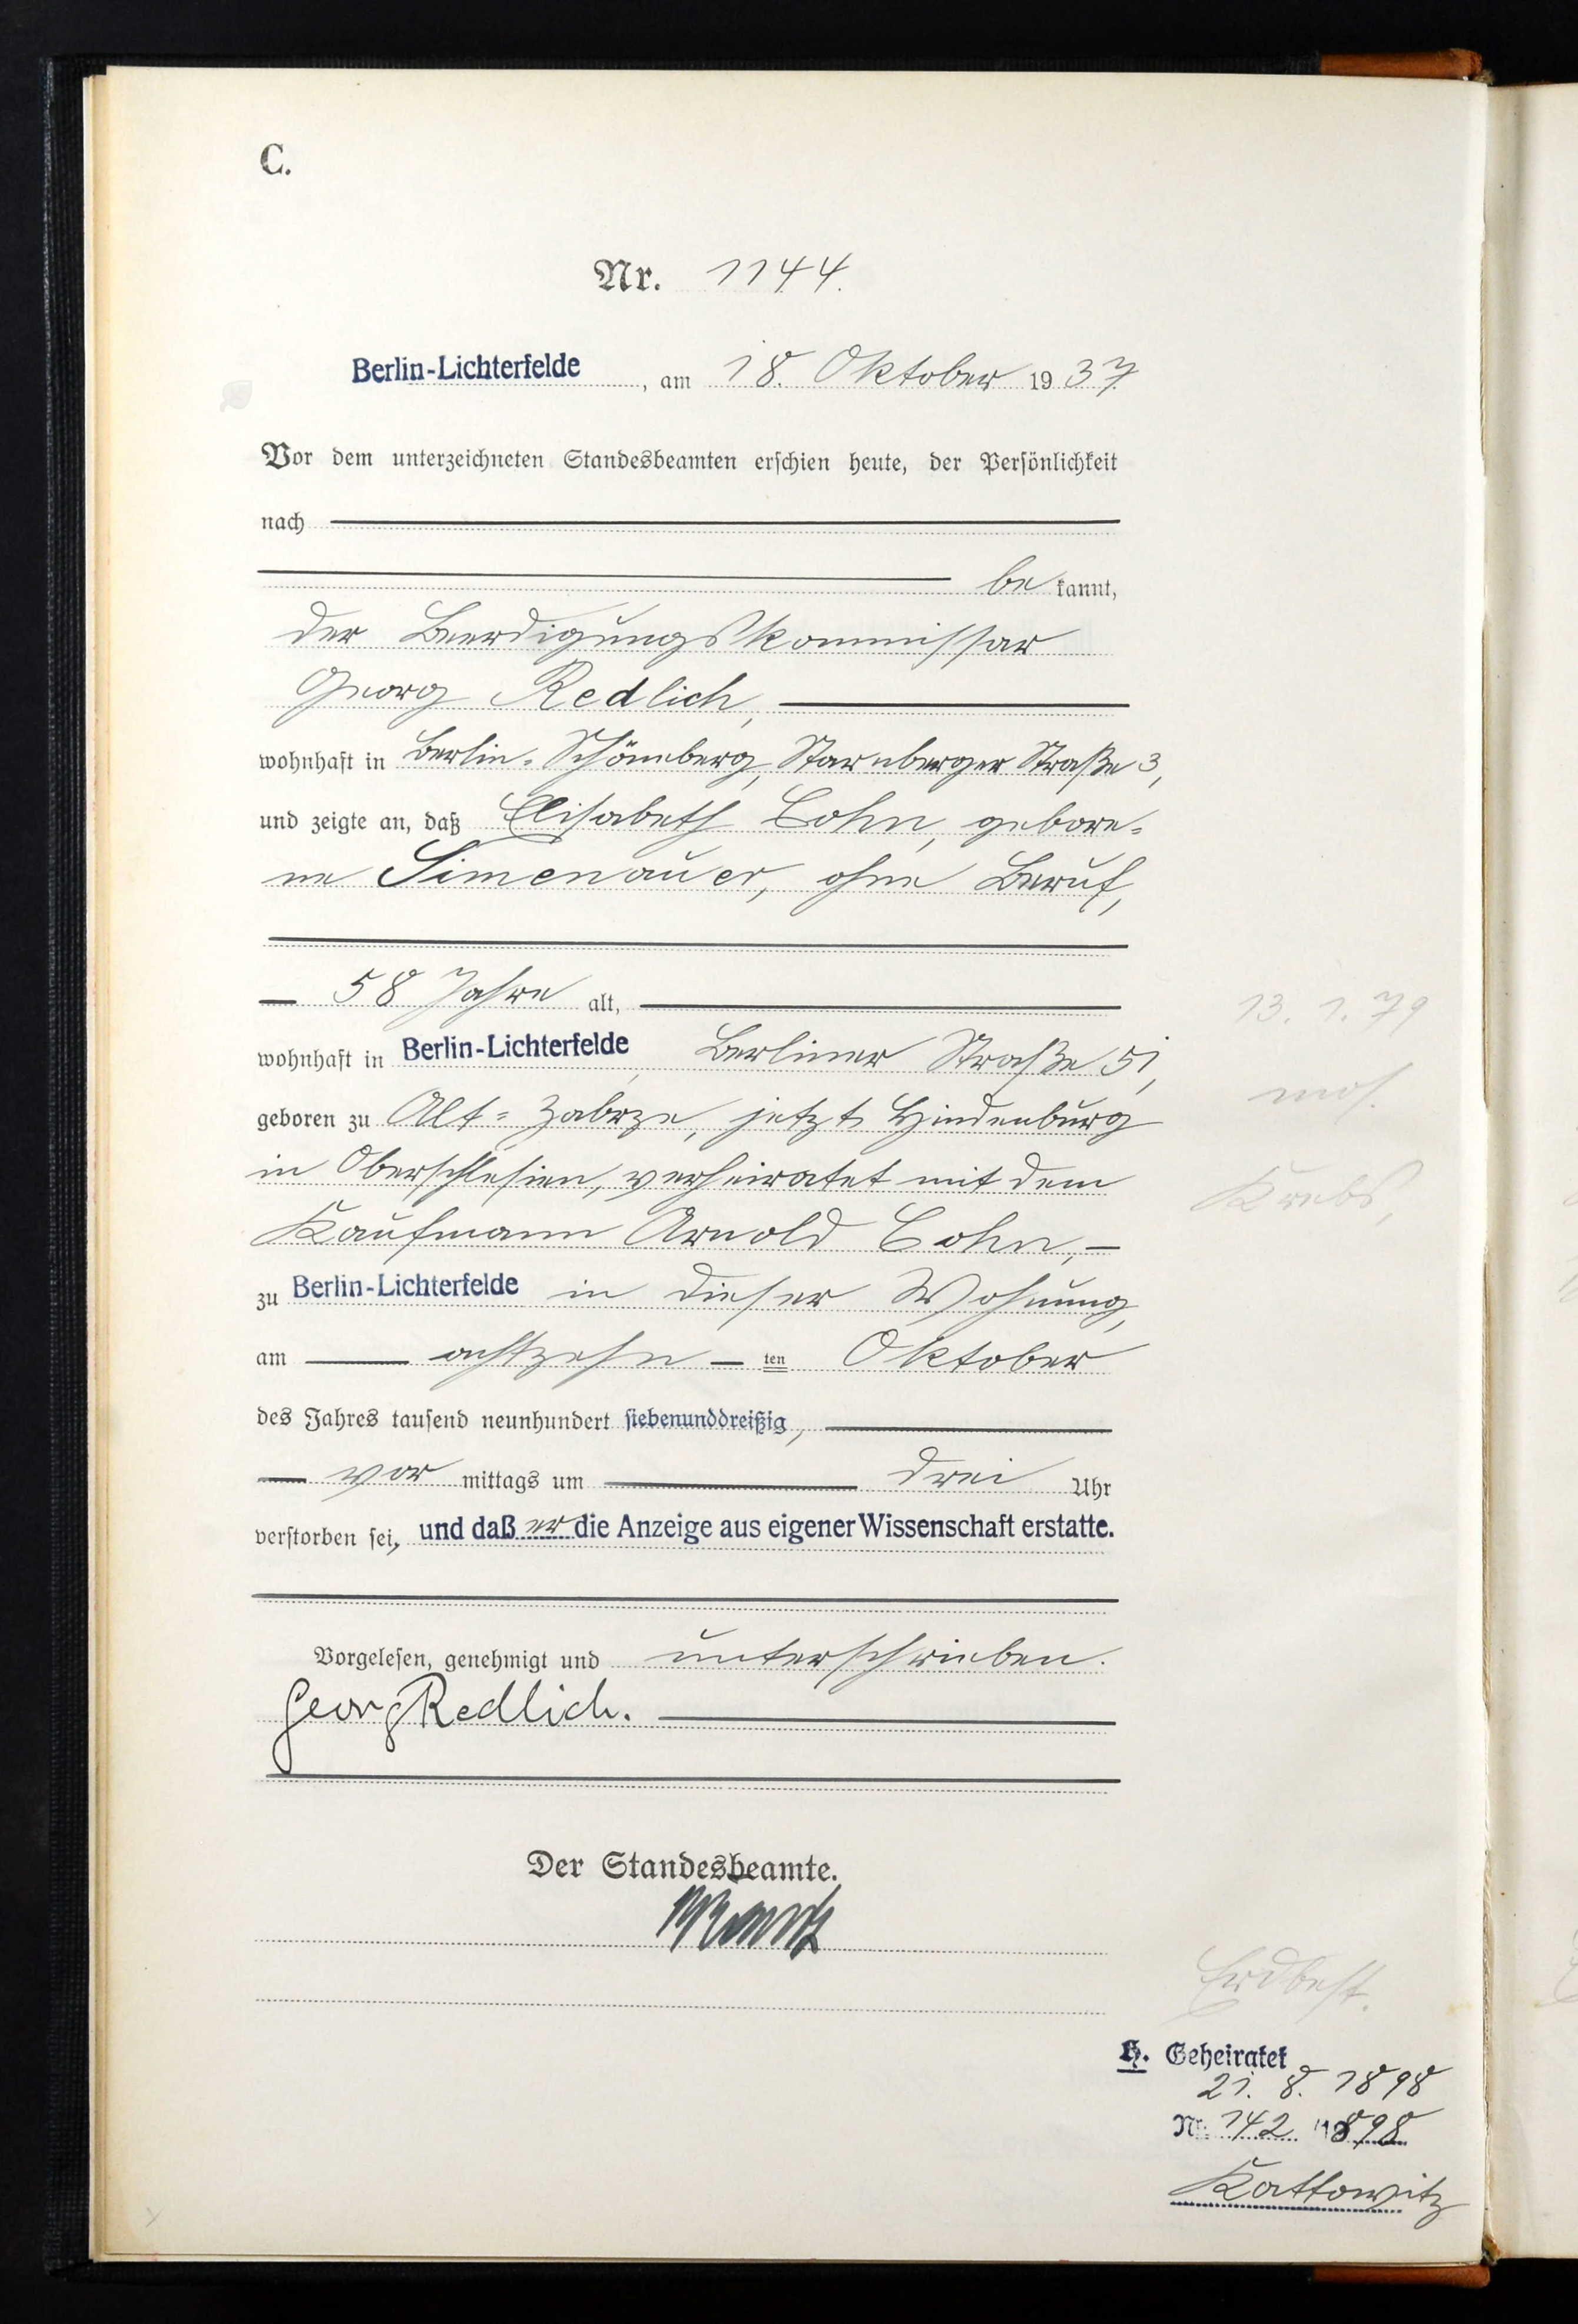 C.
Nr. 1144.
Berlin-Lichterfelde, am 18. Oktober 1937
Vor dem unterzeichneten Standesbeamten erschien heute, der Persönlichkeit
nach
be kannt,
der Beerdigungskommissar
Georg Redlich,
wohnhaft in Berlin-Schöneberg, Starnberger Straße 3,
und zeigte an, daß Elisabeth Cohn, gebore-
ne Simenauer, ohne Beruf,
58 Jahre alt,
wohnhaft in Berlin-Lichterfelde, Berliner Straße 51,
geboren zu Alt-Zabrze, jetzt Hindenburg
in Oberschlesien, verheiratet mit dem
Kaufmann Arnold Cohn,
zu Berlin-Lichterfelde in dieser Wohnung,
am achtzehn ten Oktober
des Jahres tausend neunhundert siebenunddreißig,
vor mittags um drei Uhr
verstorben sei, und daß er die Anzeige aus eigener Wissenschaft erstatte.
Vorgelesen, genehmigt und unterschrieben.
Georg Redlich.
Der Standesbeamte.
13. 1. 79
mos.
Krebs,
Erdbest.
H. Geheiratet
21. 8. 1898
Nr. 142 1898
Kattowitz